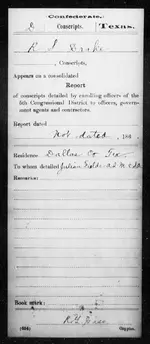 Confederate.
D Conscripts. Texas.
R S Drake
Conscripts.
Appears on a consolidated
Report
of conscripts detailed by enrolling officers of the
5th Congressional District to officers, govern-
ment agents and contractors.
Report dated
Not dated, 186 .
Residence Dallas Co Tex
To whom detailed Julian Feild A Q M C S A
Remarks:
Book mark:
(634) Copyist.